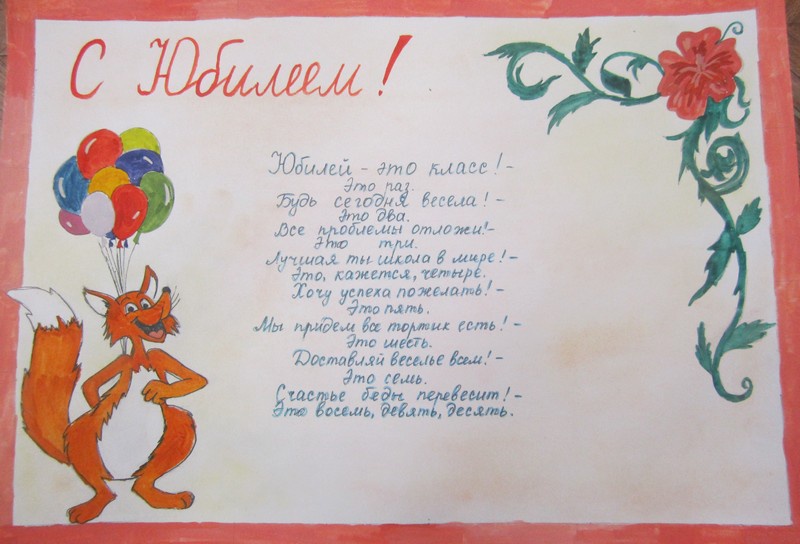 С Юбилеем!
Юбилей - это класс! -
Это раз.
Будь сегодня весела! -
Это два.
Все проблемы отложи! -
Это три.
Лучшая ты школа в мире! -
Это, кажется, четыре.
Хочу успеха пожелать! -
Это пять.
Мы придем все тортик есть! -
Это шесть.
Доставляй веселье всем! -
Это семь.
Счастье беды перевесит! -
Это восемь, девять, десять.